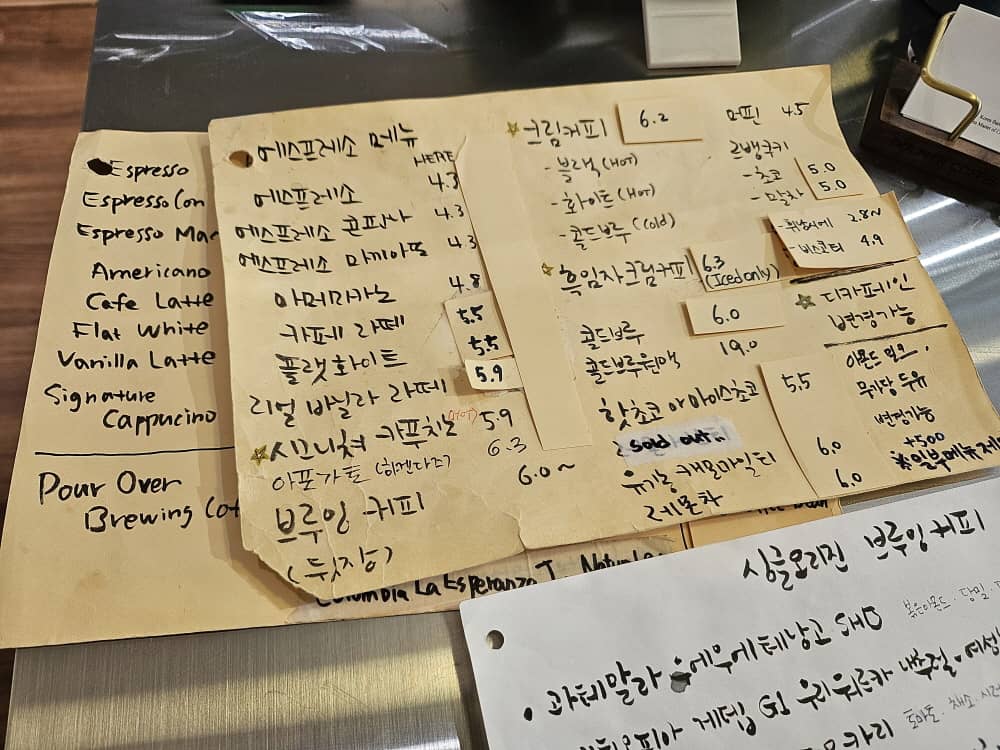 Espresso
Espresso Con
Espresso Mac
Americano
Cafe Latte
Flat White
Vanilla Latte
Signature
Cappucino
Pour Over
Brewing Cof
에스프레소 메뉴
HERE
에스프레소 4.3
에스프레소 콘파나 4.3
에스프레소 마끼아또 4.3
아메리카노 4.8
카페 라떼 5.5
플랫화이트 5.5
리얼 바닐라 라떼 5.9
☆시그니쳐 카푸치노 (HOT) 5.9
아포가토 (하겐다즈) 6.3
브루잉 커피 6.0~
(뒷장)
☆크림커피 6.2
- 블랙 (HOT)
- 화이트 (HOT)
- 콜드브루 (Cold)
☆흑임자크림커피 6.3
(Iced only)
콜드브루 6.0
콜드브루원액 19.0
핫초코 아이스초코 5.5
sold out..
유기농 캐모마일티 6.0
레몬차 6.0
머핀 4.5
르뱅쿠키
- 초코 5.0
- 말차 5.0
- 휘낭시에 2.8~
- 비스코티 4.9
☆ 디카페인
변경가능
아몬드 밀크,
무가당 두유
변경가능
+500
※일부메뉴제
Columbia La Esperanza T. Natural
싱글오리진 브루잉 커피
볶은아몬드 · 당밀
• 과테말라 우에우에테낭고 SHB
에티오피아 게뎁 G1 우리워르카 내추럴 · 여성
토마토 · 채소 · 시러